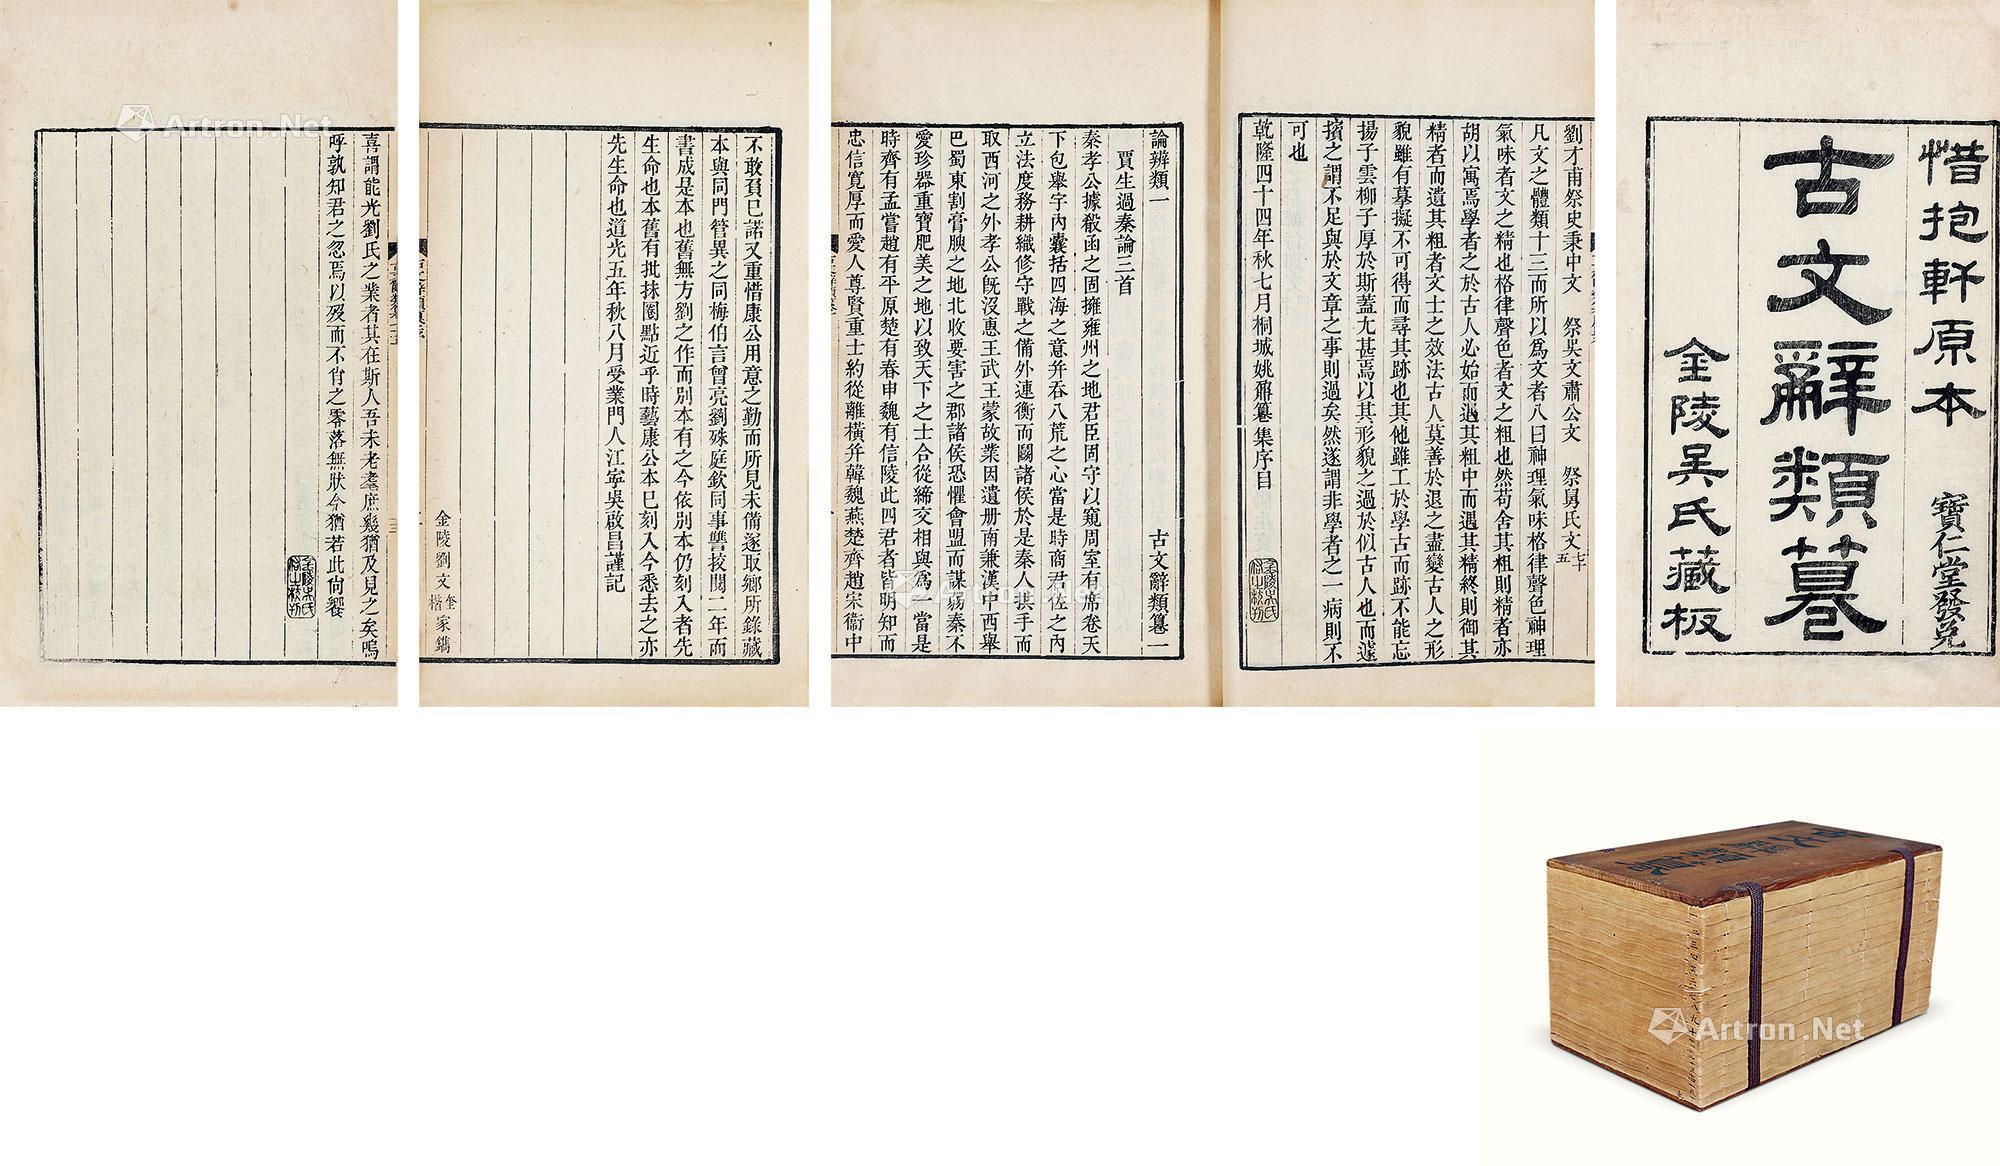 惜抱軒原本
寶仁堂發兌
古文辭類纂
金陵吳氏藏板
劉才甫祭史秉中文　祭吳文肅公文　祭舅氏文　七十五
凡文之體類十三而所以爲文者八曰神理氣味格律聲色神理
氣味者文之精也格律聲色者文之粗也然苟舍其粗則精者亦
胡以寓焉學者之於古人必始而遇其粗中而遇其精終則御其
精者而遺其粗者文士之效法古人莫善於退之盡變古人之形
貌雖有摹擬不可得而尋其跡也其他雖工於學古而跡不能忘
揚子雲柳子厚於斯蓋尤甚焉以其形貌之過於似古人也而遽
擯之謂不足與於文章之事則過矣然遂謂非學者之一病則不
可也
乾隆四十四年秋七月桐城姚鼐纂集序目
論辨類一　古文辭類纂一
賈生過秦論三首
秦孝公據殽函之固擁雍州之地君臣固守以窺周室有席卷天
下包舉宇內囊括四海之意幷吞八荒之心當是時商君佐之內
立法度務耕織修守戰之備外連衡而鬭諸侯於是秦人拱手而
取西河之外孝公旣沒惠王武王蒙故業因遺册南兼漢中西舉
巴蜀東割膏腴之地北收要害之郡諸侯恐懼會盟而謀弱秦不
愛珍器重寶肥美之地以致天下之士合從締交相與爲一當是
時齊有孟嘗趙有平原楚有春申魏有信陵此四君者皆明知而
忠信寬厚而愛人尊賢重士約從離橫幷韓魏燕楚齊趙宋衞中
不敢負巳諾又重惜康公用意之勤而所見未備遂取鄉所錄藏
本與同門管異之同梅伯言曾亮劉殊庭欽同事讐挍閱二年而
書成是本也舊無方劉之作而別本有之今依別本仍刻入者先
生命也本舊有批抹圈點近乎時藝康公本巳刻入今悉去之亦
先生命也道光五年秋八月受業門人江寧吳啟昌謹記
金陵劉文奎楷家鐫
喜謂能光劉氏之業者其在斯人吾未老耄庶幾猶及見之矣嗚
呼孰知君之忽焉以歿而不肖之零落無狀今猶若此尙饗
Artron.Net
Artron.Net
Artron.Net